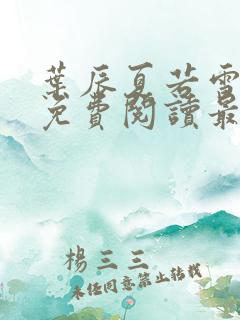 葉辰夏若雪
免費閱讀最
楊三三
未經同意禁止轉載